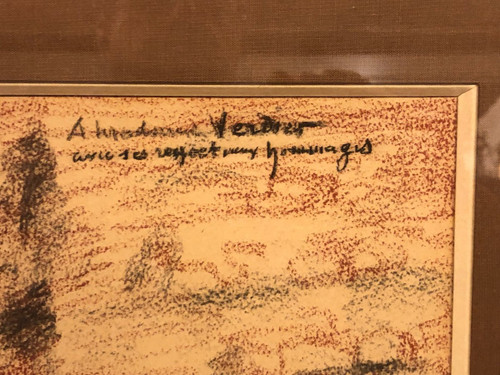 A Madame Verdier
avec ses respectueux hommages